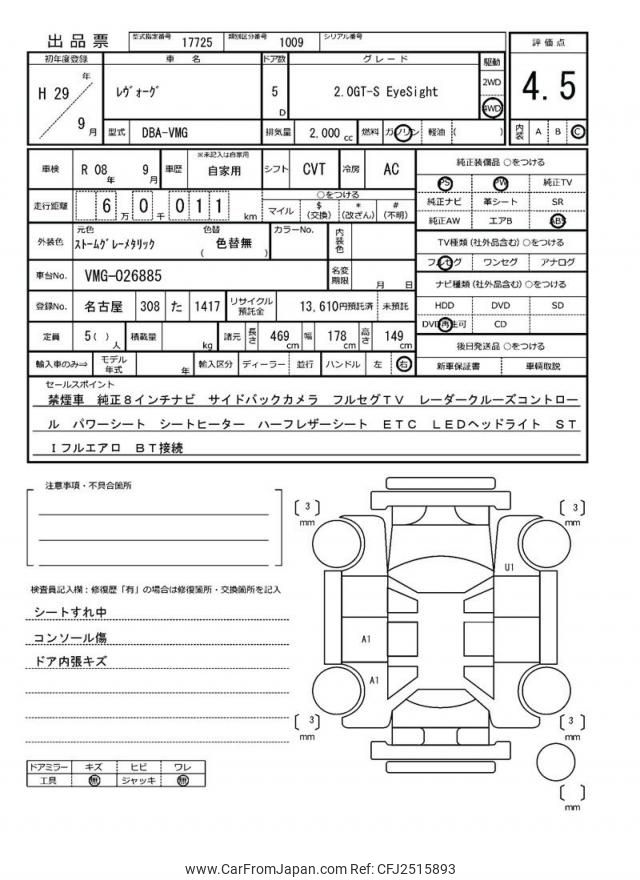 出品票 型式指定番号 17725 類別区分番号 1009 シリアル番号
初年度登録 車 名 ドア数 グレード 駆動 評価点
H 29 年 9 月 ﾚｳﾞｫｰｸﾞ 5 D 2.0GT-S EyeSight 2WD 4WD 4.5
型式 DBA-VMG 排気量 2,000 cc 燃料 ガソリン 軽油 ( ) 内装 A B C
車検 R 08 年 9 月 車歴 ※未記入は自家用 自家用 シフト CVT 冷房 AC
純正装備品 ○をつける
PS PW 純正TV
純正ナビ 革シート SR
純正AW エアB ABS
走行距離 6 万 0 千 0 1 1 km ○をつける
マイル $ (交換) * (改ざん) # (不明)
外装色 元色 ｽﾄｰﾑｸﾞﾚｰﾒﾀﾘｯｸ 色替 ( 色替無 ) カラーNo. 内装色
TV種類 (社外品含む) ○をつける
フルセグ ワンセグ アナログ
車台No. VMG-026885 名変期限 月 日
ナビ種類 (社外品含む) ○をつける
HDD DVD SD
DVD再生可 CD
登録No. 名古屋 308 た 1417 リサイクル預託金 13,610円預託済 未預託
定員 5( ) 人 積載量 kg 諸元 長さ 469 cm 幅 178 cm 高さ 149 cm
後日発送品 ○をつける
新車保証書 車輌取説
輸入車のみ⇒ モデル年式 年 輸入区分 ディーラー 並行 ハンドル 左 右
セールスポイント
禁煙車 純正８インチナビ サイドバックカメラ フルセグＴＶ レーダークルーズコントロー
ル パワーシート シートヒーター ハーフレザーシート ＥＴＣ ＬＥＤヘッドライト ＳＴ
Ｉフルエアロ ＢＴ接続
注意事項・不具合箇所
検査員記入欄：修復歴「有」の場合は修復箇所・交換箇所を記入
シートすれ中
コンソール傷
ドア内張キズ
ドアミラー キズ ヒビ ワレ
工具 無 ジャッキ 無
3 mm
3 mm
U1
A1
A1
3 mm
3 mm
mm
www.CarFromJapan.com Ref: CFJ2515893